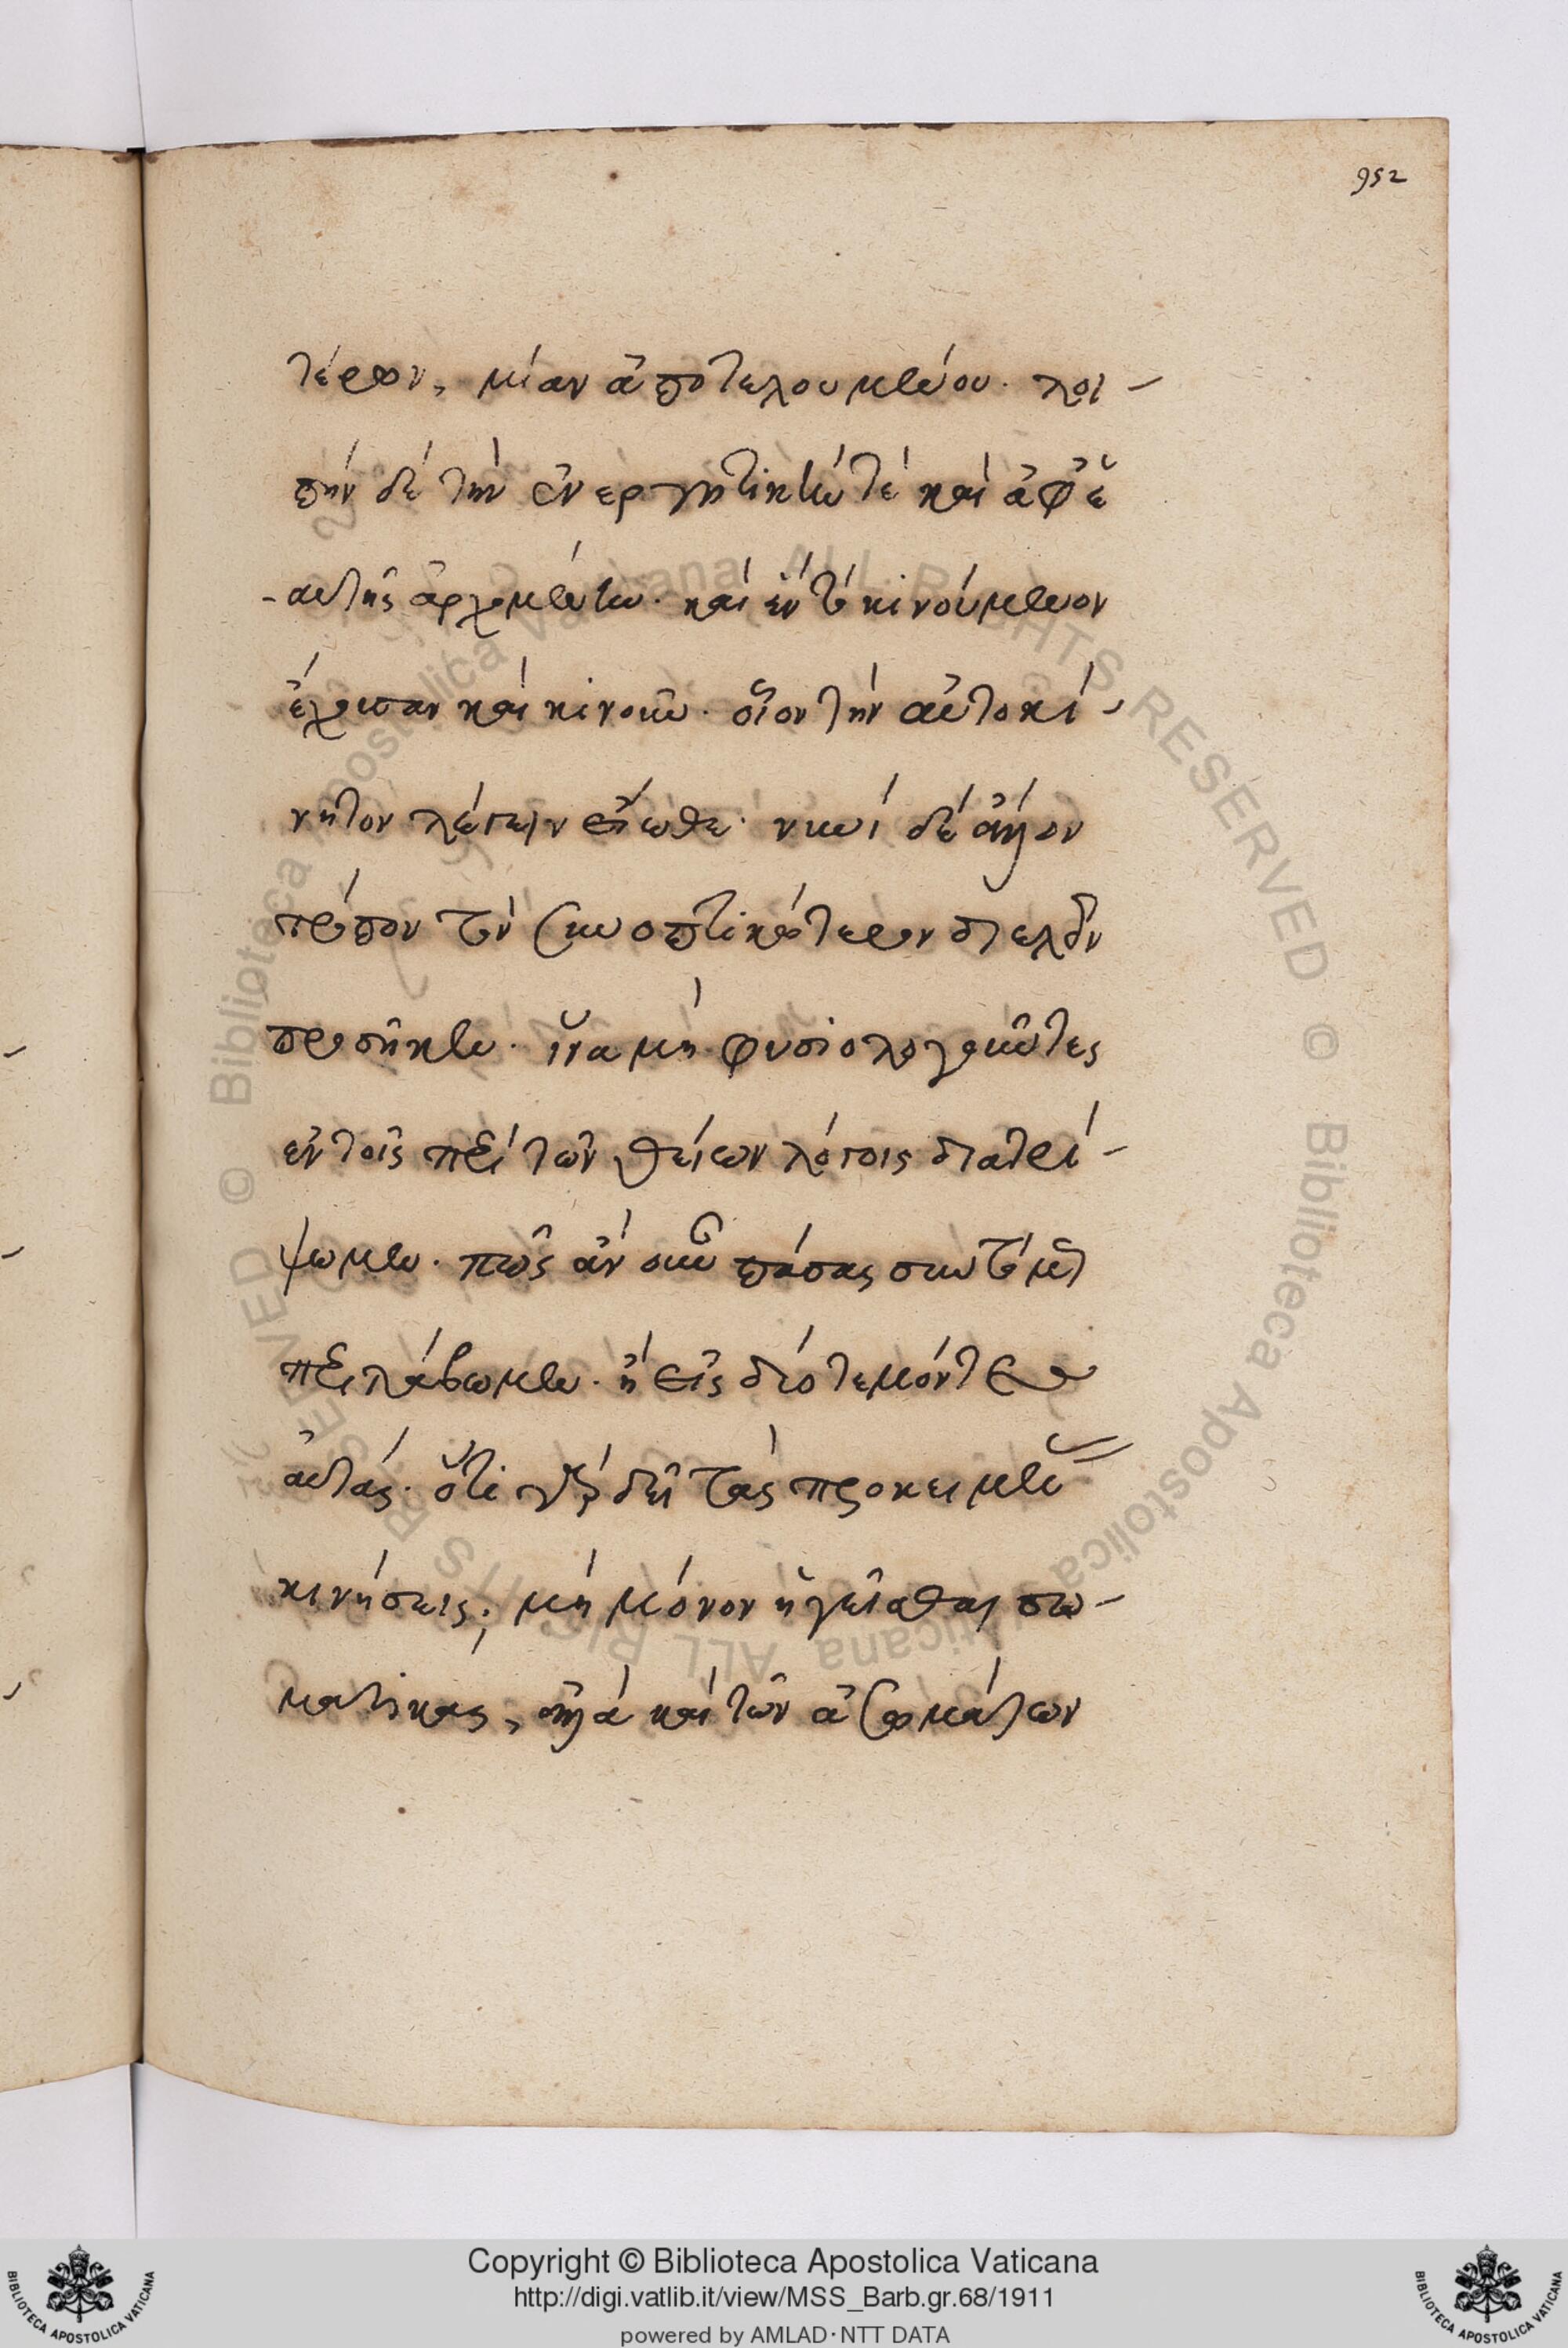 952
τέρου, μίαν ἀποτελουμένου. λοι-
πὴν δὲ τὴν ἐνεργητικήν τε καὶ ἀφ' ἑ
-αυτῆς ἀρχομένην. καὶ ἕν τὸ κινούμενον
ἔχουσαν καὶ κινοῦν. οἷον τὴν αὐτοκί-
νητον λέγειν εἴωθε. νυνὶ δὲ ἄλλον
τρόπον τὸν συνοπτικώτερον διελεῖν
προσῆκεν. ἵνα μὴ φυσιολογοῦντες
ἐν τοῖς περὶ τῶν θείων λόγοις διατρί-
ψωμεν. πῶς ἂν οὖν πάσας συντόμως
περιλάβωμεν. ἢ εἰς δύο τεμόντες
αὐτάς. ὅτι γὰρ δεῖ τὰς προκειμένας
κινήσεις, μὴ μόνον ἡγεῖσθαι σω-
ματικὰς, ἀλλὰ καὶ τῶν ἀσωμάτων
Copyright © Biblioteca Apostolica Vaticana
http://digi.vatlib.it/view/MSS_Barb.gr.68/1911
powered by AMLAD·NTT DATA
BIBLIOTECA APOSTOLICA VATICANA
BIBLIOTECA APOSTOLICA VATICANA
© Biblioteca Apostolica Vaticana ALL RIGHTS RESERVED © Biblioteca Apostolica Vaticana ALL RIGHTS RESERVED